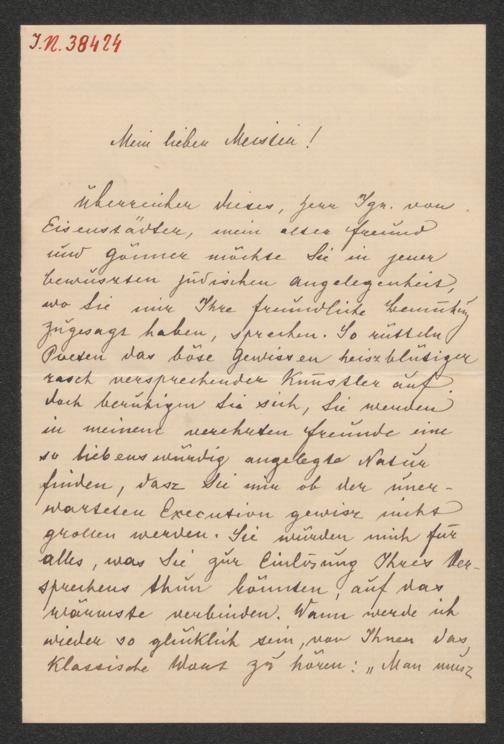 I.N. 38424
Mein lieber Meister!
Überreicher dieses, Herr Ign. von
Eisenstädter, mein alter Freund
und Gönner möchte Sie in jener
bewuszten jüdischen Angelegenheit,
wo Sie mir Ihre freundliche Bemühung
zugesagt haben, sprechen. So rütteln
Poeten das böse Gewissen heiszblütiger
rasch versprechender Künstler auf.
Doch beruhigen Sie sich, Sie werden
in meinem verehrten Freunde eine
so liebenswürdig angelegte Natur
finden, dasz Sie mir ob der uner-
warteten Execution gewisz nicht
grollen werden. Sie würden mich für
alles, was Sie zur Einlösung Ihres Ver-
sprechens thun könnten, auf das
wärmste verbinden. Wann werde ich
wieder so glücklich sein, von Ihnen das
klassische Wort zu hören: „Man musz